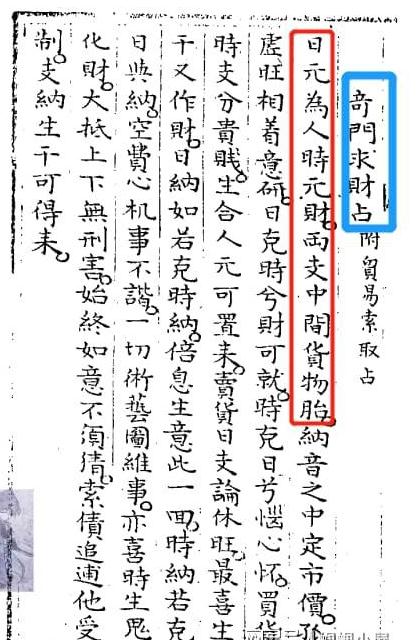 奇門求財占 附貿易索取占
日元為人時元財。両支中間貨物胎。納音之中定市價。孤
虛旺相着意研。日克時兮財可就。時克日兮惱心怀。買貨
時支分貴賤。生合人元可置来。賣貨日支論休旺。最喜生
干又作財。日納如若克時納。倍息生意此一回。時納若克
日與納。空費心机事不諧。一切術藝圖維事。亦喜時生鬼
化財。大抵上下無刑害。始終如意不須猜。索債追逋他受
制。支納生干可得来。